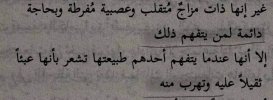 غير إنها ذات مزاجٌ مُتقلب وعصبية مُفرطة وبحاجة
دائمة لمن يتفهم ذلك
إلا أنها عندما يتفهم أحدهم طبيعتها تشعر بأنها عبئاً
ثقيلاً عليه وتهرب منه